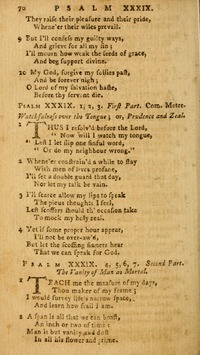 70 P S A L M XXXIX.
They raise their pleasure and their pride,
Whene'er their wiles prevail.
9 But I'll confess my guilty ways,
And grieve for all my sin;
I'll mourn how weak the seeds of grace,
And beg support divine.
10 My God, forgive my follies past,
And be forever nigh;
O Lord of my salvation haste,
Before thy servant die.
PSALM XXXIX. 1, 2, 3. First Part. Com. Metre.
Watchfulness over the Tongue; or, Prudence and Zeal.
1 THUS I resolv'd before the Lord,
" Now will I watch my tongue,
" Lest I let slip one sinful word,
" Or do my neighbour wrong."
2 Whene'er constrain'd a while to stay
With men of lives profane,
I'll set a double guard that day,
Nor let my talk be vain.
3 I'll scarce allow my lips to speak
The pious thoughts I feel,
Lest scoffers should th' occasion take
To mock my holy zeal.
4 Yet if some proper hour appear,
I'll not be over-aw'd,
But let the scoffing sinners hear
That we can speak for God.
PSALM XXXIX. 4, 5, 6, 7. Second Part.
The Vanity of Man as Mortal.
1 TEACH me the measure of my days,
Thou maker of my frame;
I would survey life's narrow space,
And learn how frail I am.
2 A span is all that we can boast,
An inch or two of time:
Man is but vanity and dust
In all his flower and prime.